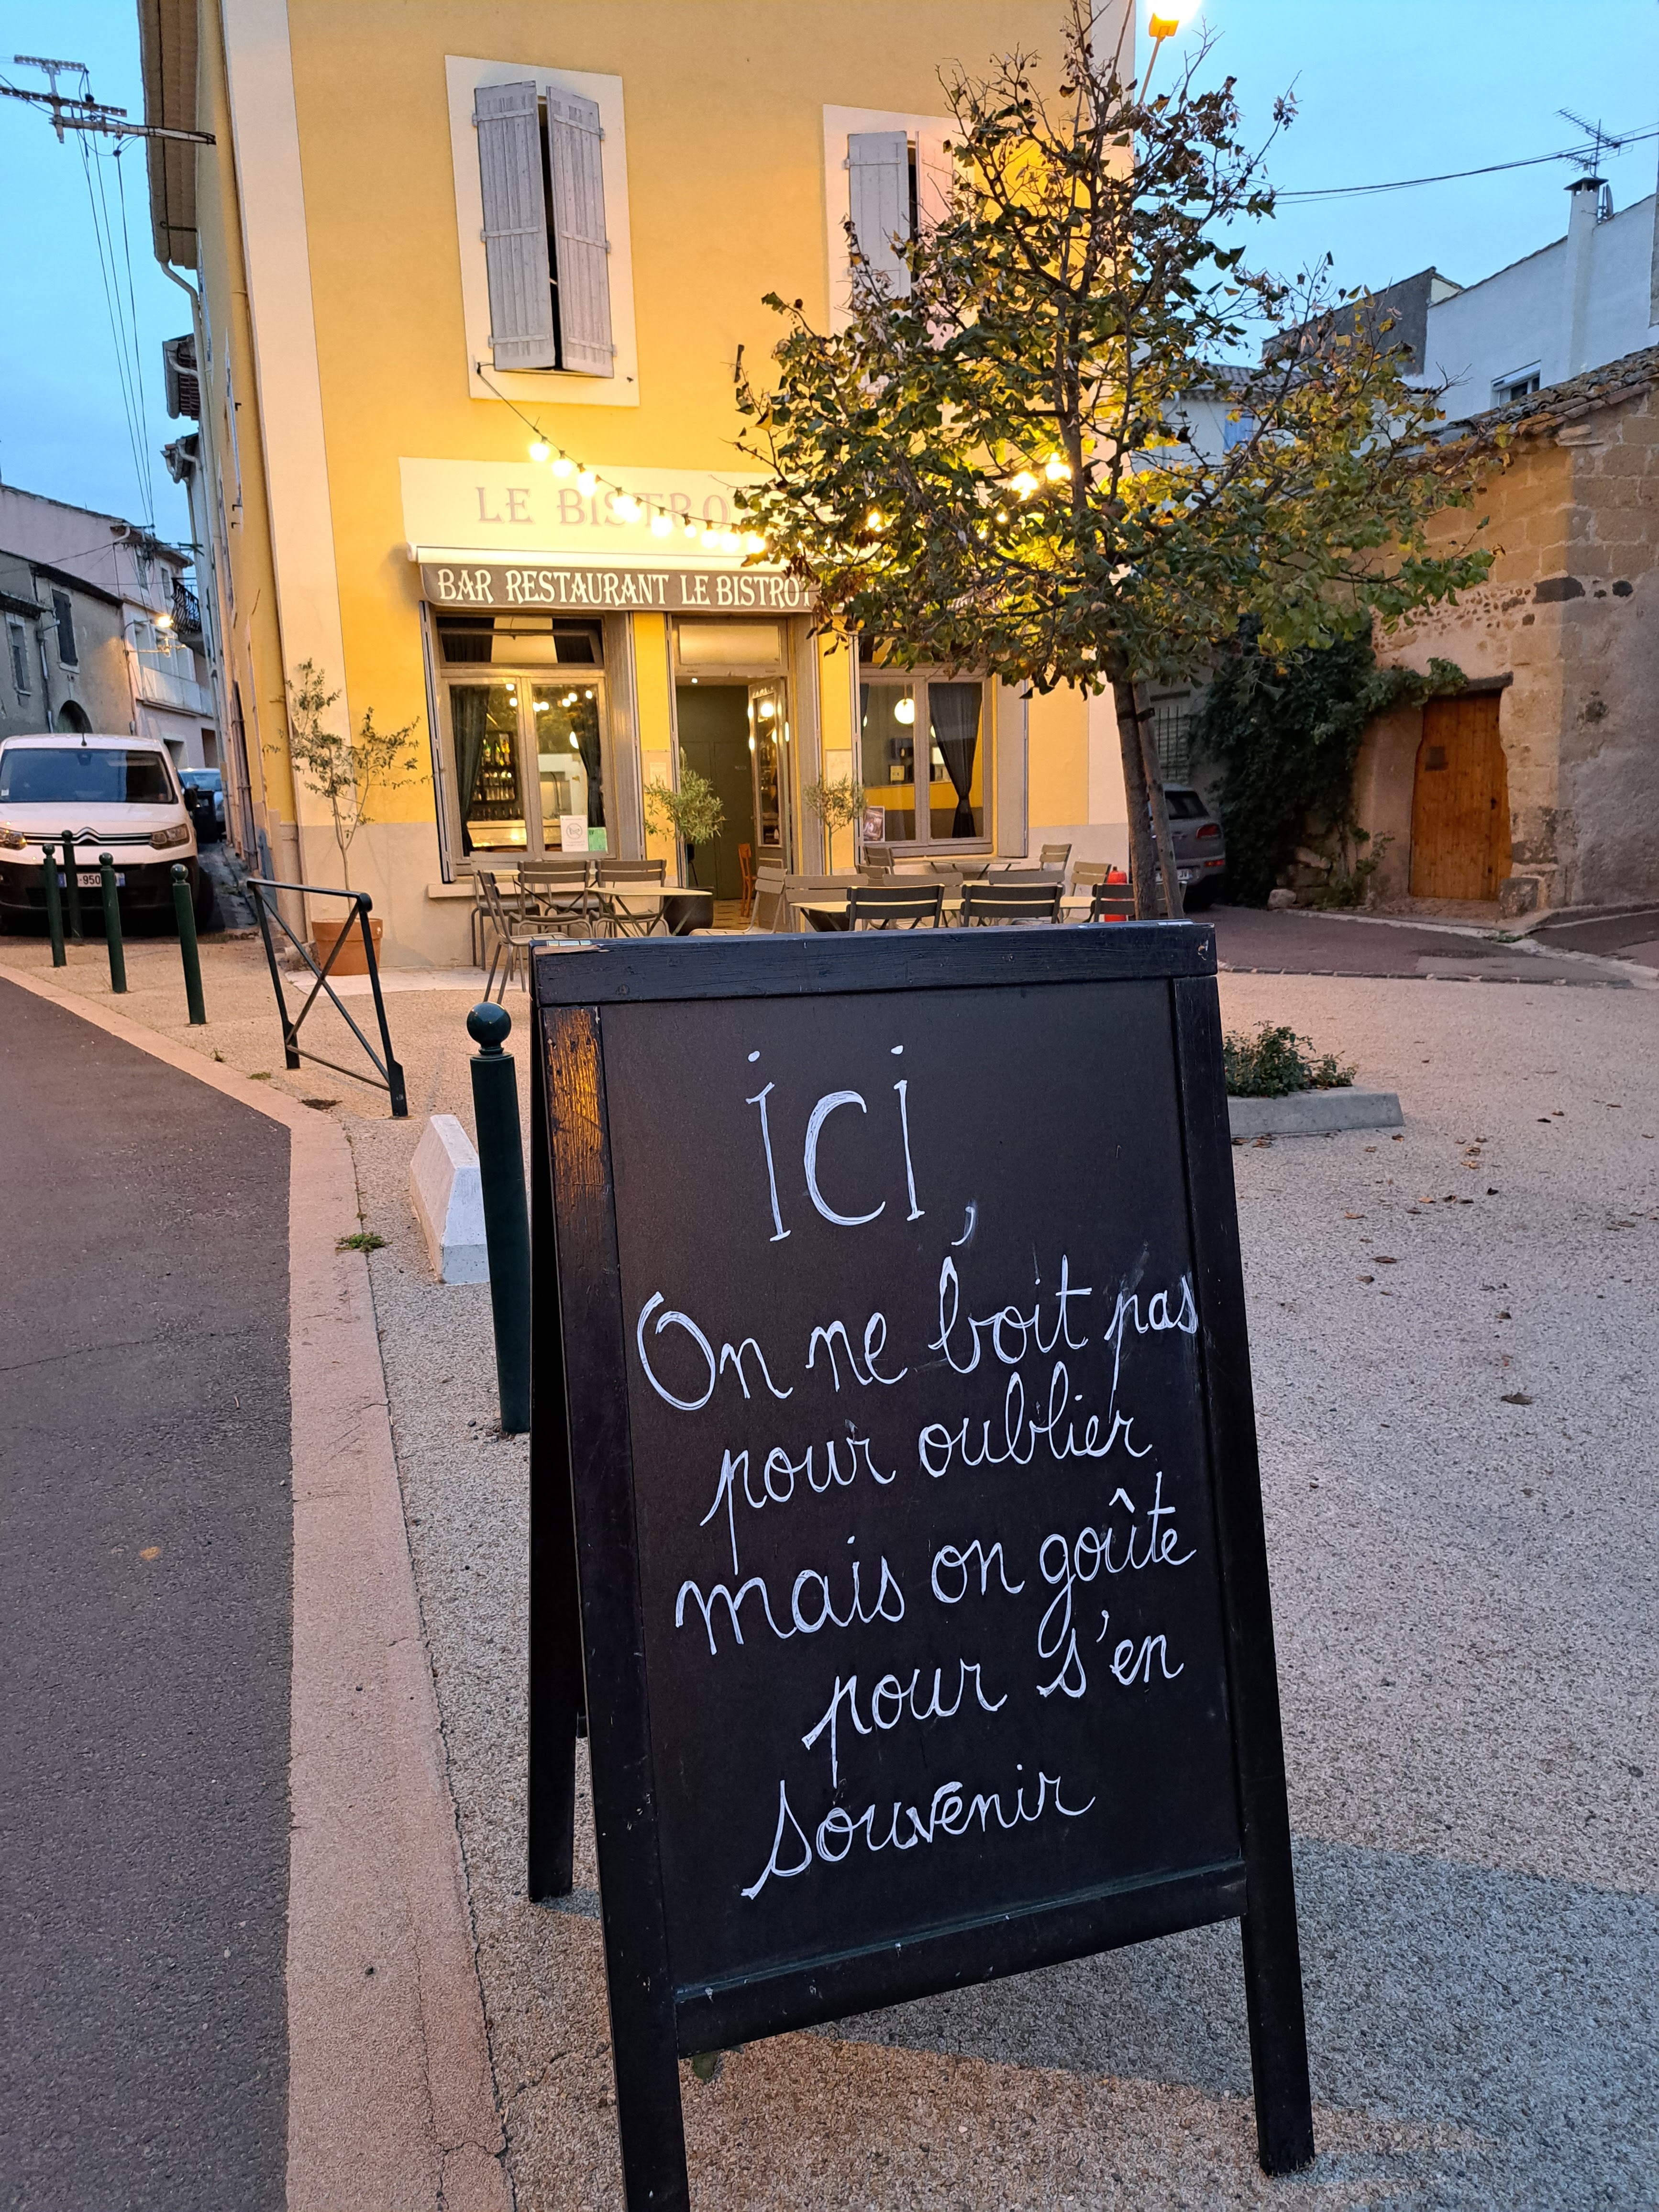 LE BISTRO
BAR RESTAURANT LE BISTROT
ici,
On ne boit pas
pour oublier
mais on goûte
pour s'en
souvenir